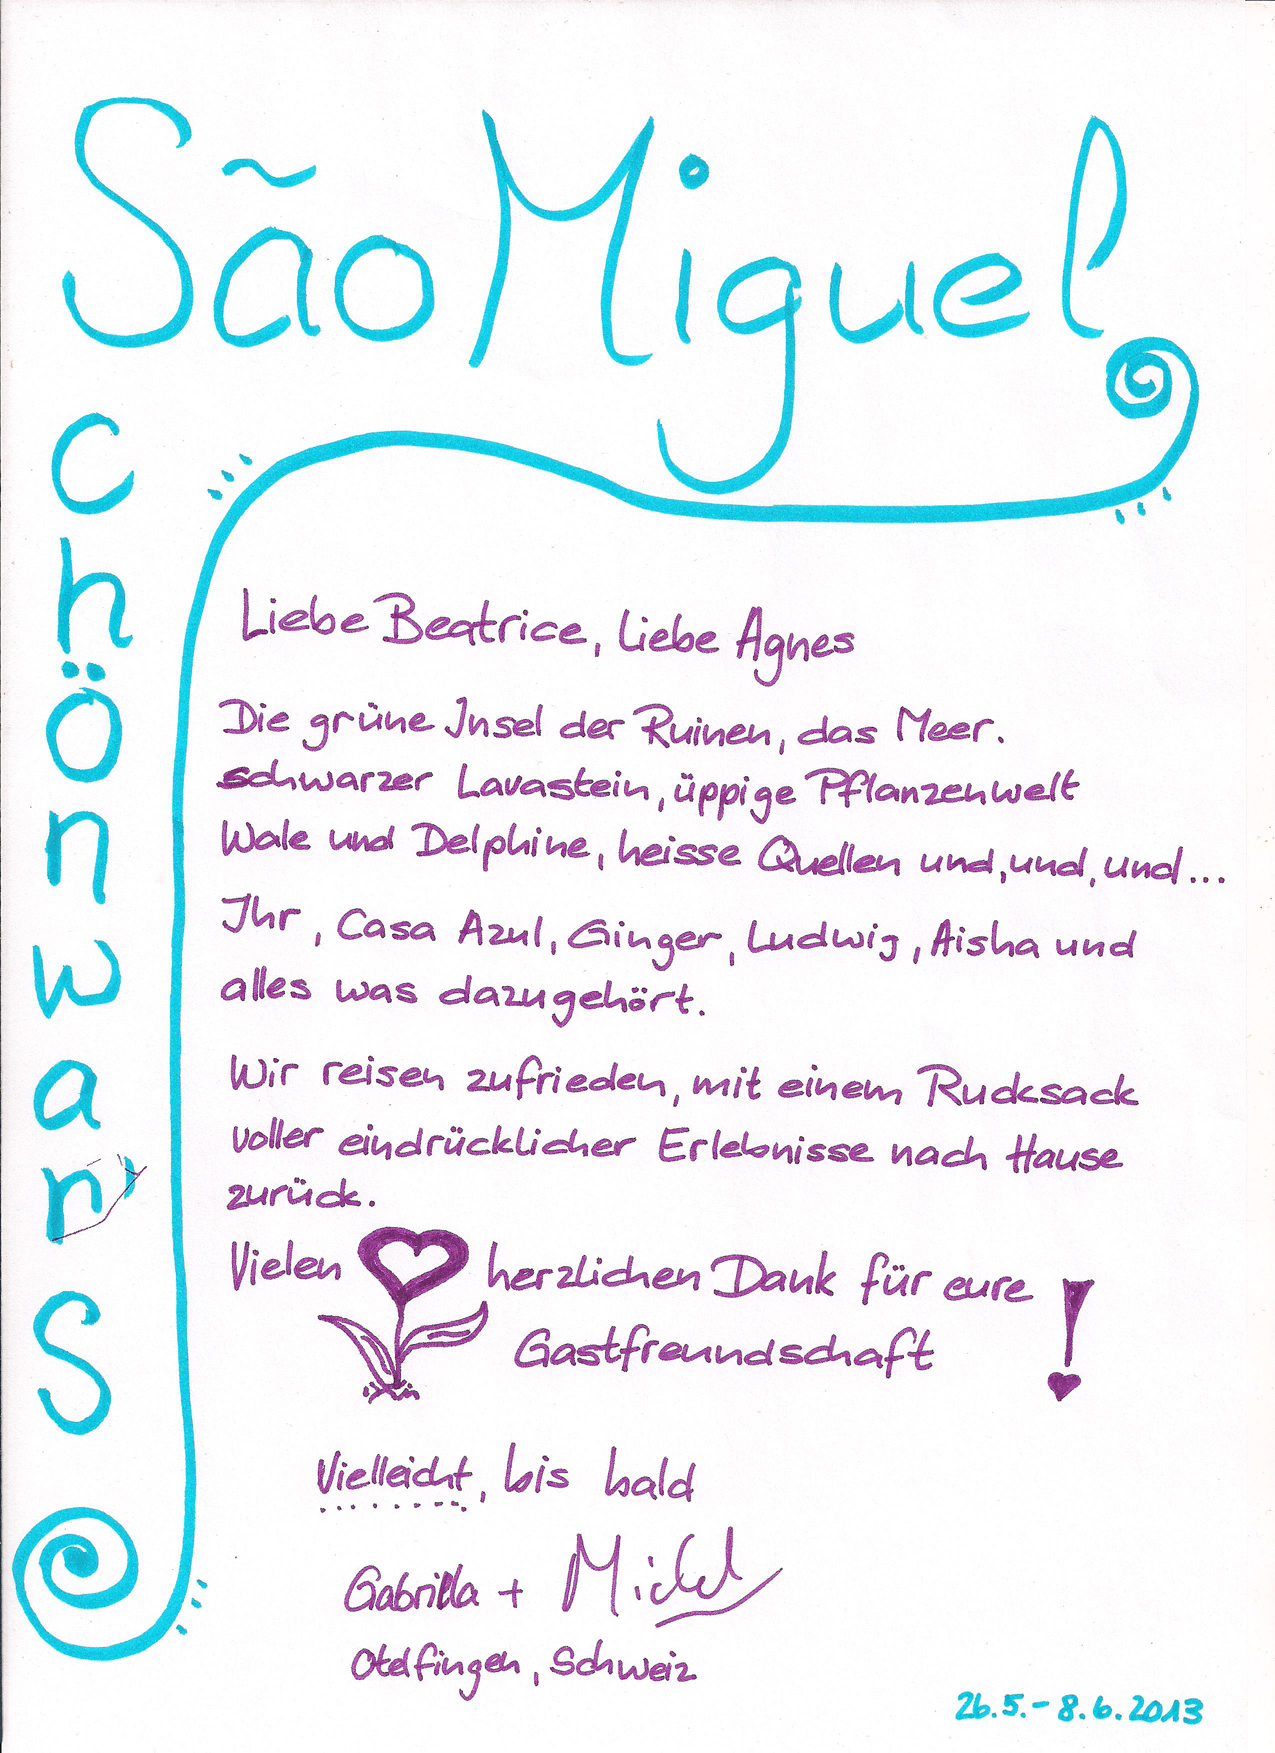 São Miguel
chön war's
Liebe Beatrice, liebe Agnes
Die grüne Insel der Ruinen, das Meer.
schwarzer Lavastein, üppige Pflanzenwelt
Wale und Delphine, heisse Quellen und, und, und...
Ihr, Casa Azul, Ginger, Ludwig, Aisha und
alles was dazugehört.
Wir reisen zufrieden, mit einem Rucksack
voller eindrücklicher Erlebnisse nach Hause
zurück.
Vielen herzlichen Dank für eure
Gastfreundschaft !
Vielleicht, bis bald
Gabriella + Michel
Otelfingen, Schweiz
26.5.-8.6.2013